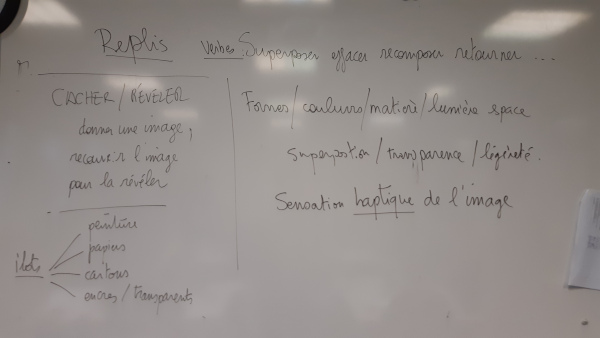 Replis Verbes: Superposer effacer recomposer retourner ...
CACHER / RÉVÉLER
donner une image,
recouvrir l'image
pour la révéler
ilots
peinture
papiers
cartons
encres / transparents
Formes / couleurs / matière / lumière space
superposition / transparence / légèreté.
Sensation haptique de l'image